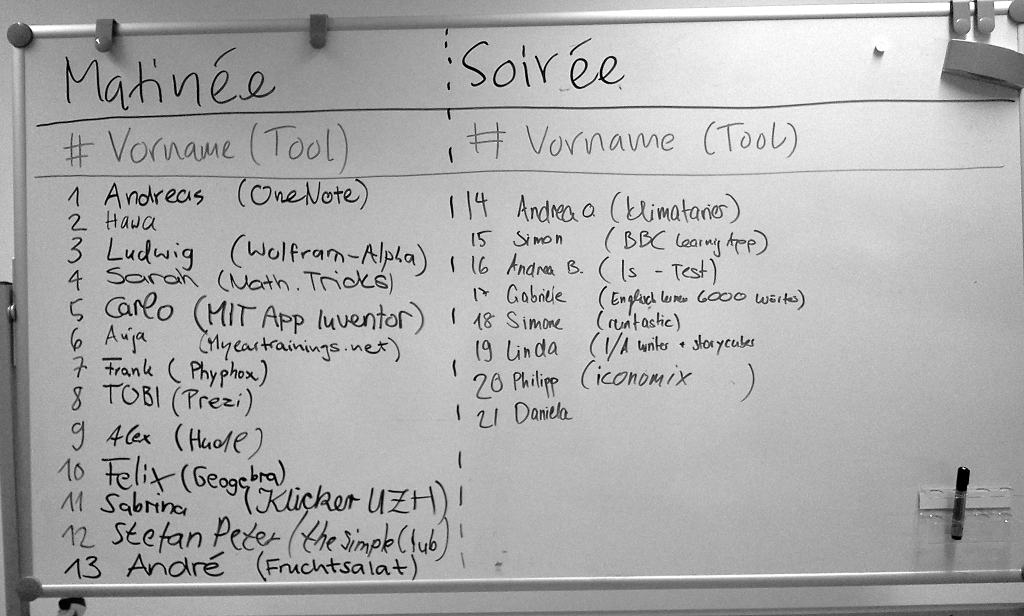 Matinée
# Vorname (Tool)
1 Andreas (OneNote)
2 Hawa
3 Ludwig (Wolfram-Alpha)
4 Sarah (Math. Tricks)
5 Carlo (MIT App Inventor)
6 Anja (Myeartrainings.net)
7 Frank (Phyphox)
8 TOBI (Prezi)
9 Alex
10 Felix (Geogebra)
11 Sabrina (Klicker UZH)
12 Stefan Peter (the simple Club)
13 André (Fruchtsalat)
Soirée
# Vorname (Tool)
14 Andrea O (klimatarier)
15 Simon (BBC Learning App)
16 Andrea B. (Is - Test)
17 Gabriele (Englisch lernen 6000 Wörter)
18 Simone (runtastic)
19 Linda (I/A writer + storycubes
20 Philipp (iconomix)
21 Daniela